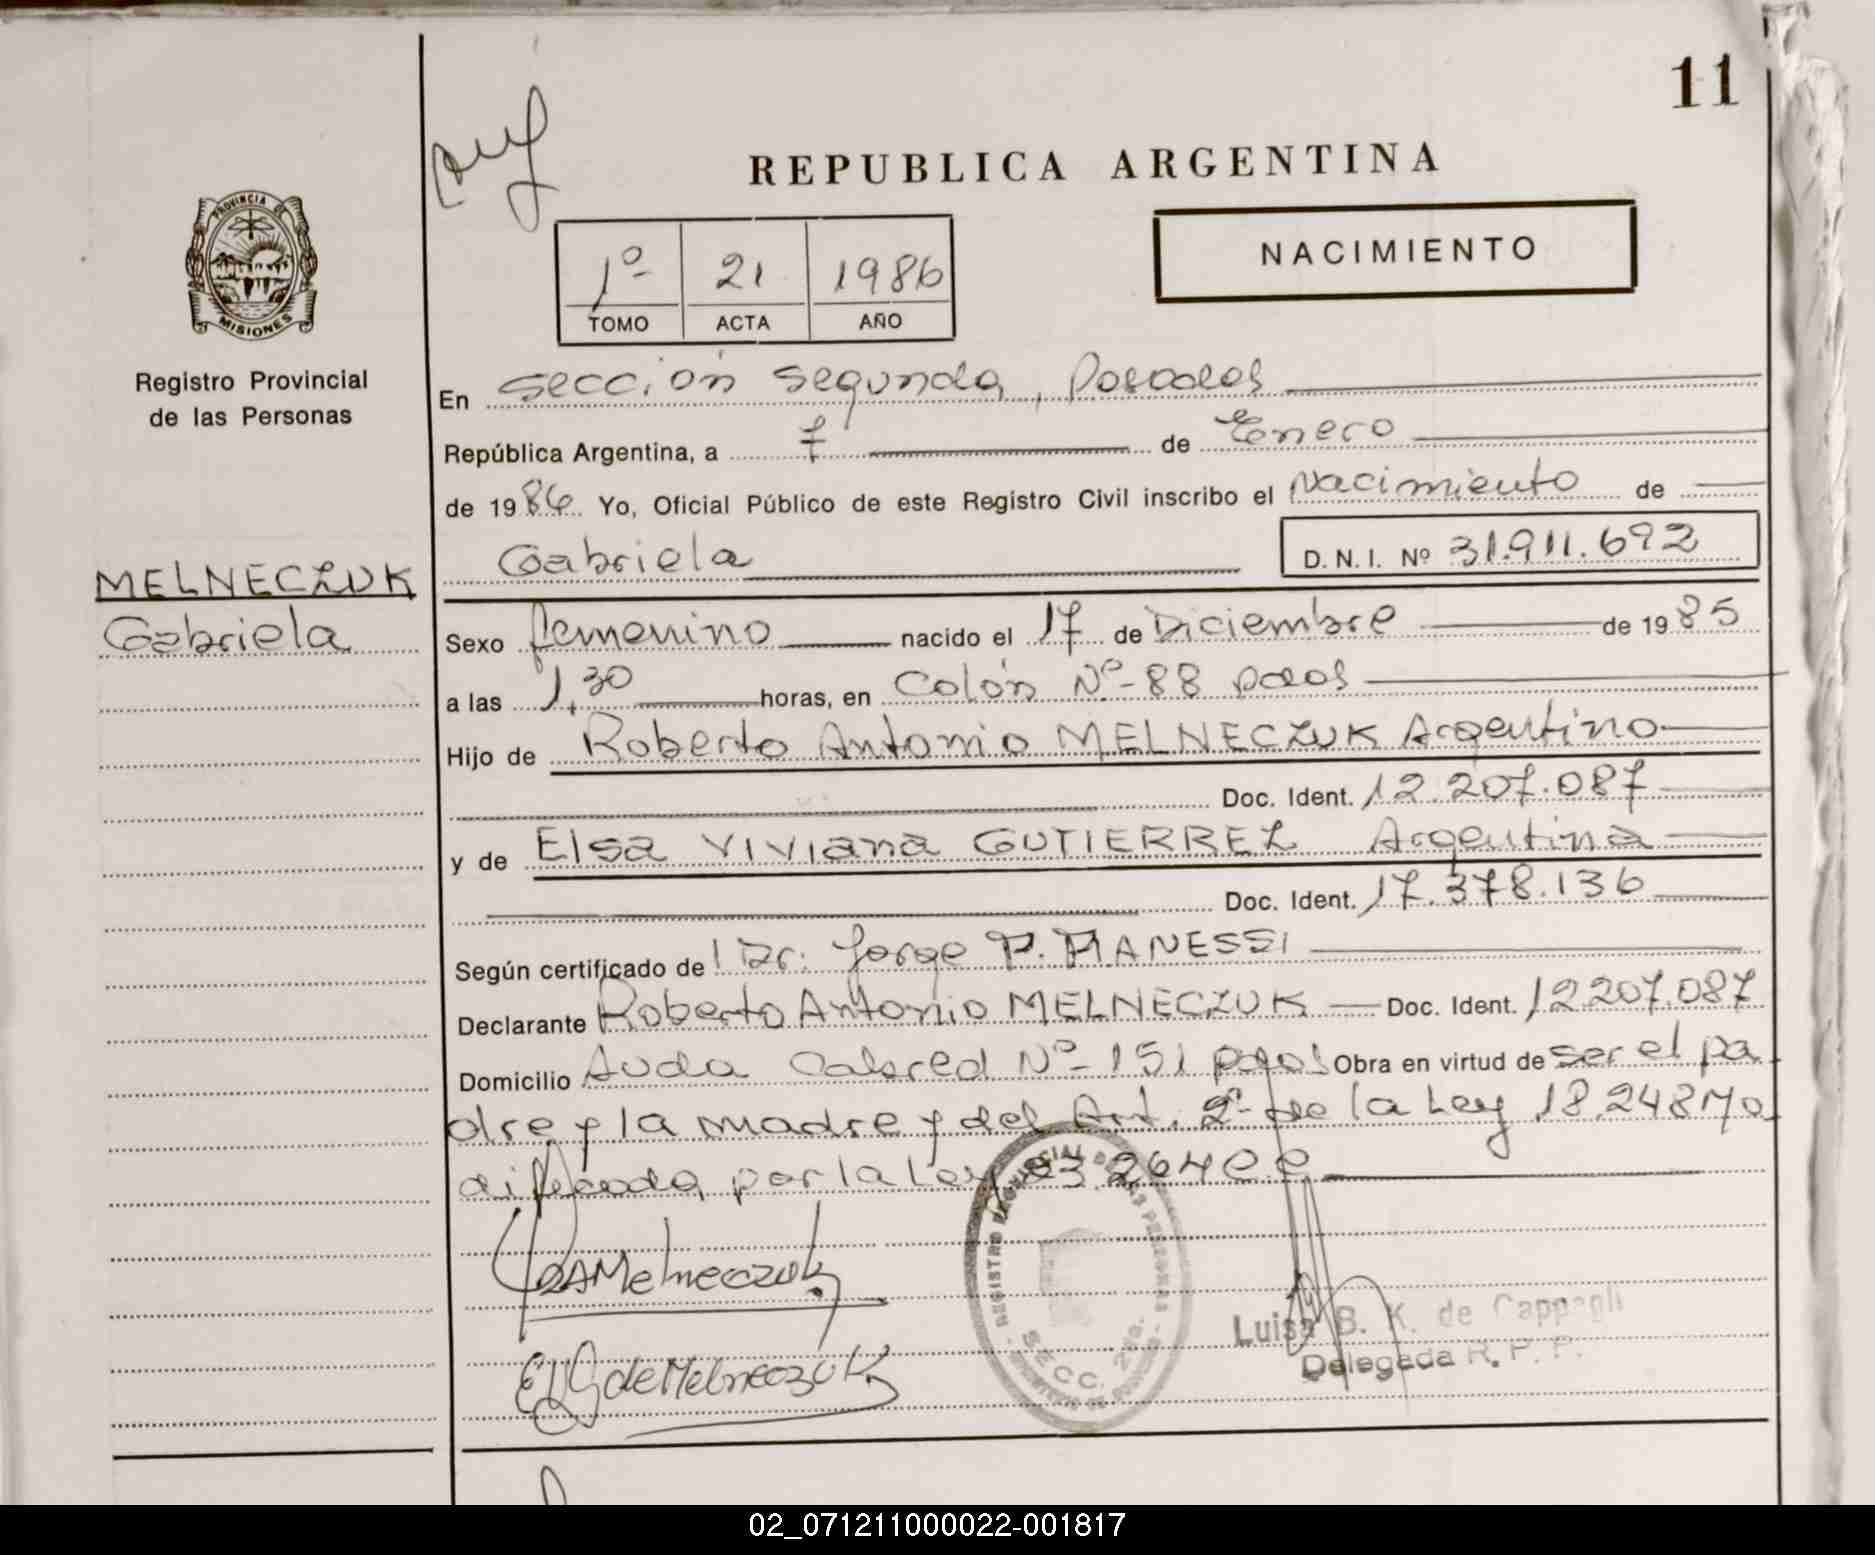 11
REPUBLICA ARGENTINA
PROVINCIA DE
MISIONES
Registro Provincial
de las Personas
1º 21 1986
TOMO ACTA AÑO
NACIMIENTO
En sección segunda, Posadas
República Argentina, a 7 de Enero
de 1986 Yo, Oficial Público de este Registro Civil inscribo el Nacimiento de
Gabriela D.N.I. Nº 31.911.692
MELNECZUK
Gabriela
Sexo femenino nacido el 17 de Diciembre de 1985
a las 1,30 horas, en Colón Nº 88 pdas
Hijo de Roberto Antonio MELNECZUK Argentino
Doc. Ident. 12.207.087
y de Elsa Viviana GUTIERREZ Argentina
Doc. Ident. 17.378.136
Según certificado de l Dr. Jorge P. PIANESSI
Declarante Roberto Antonio MELNECZUK Doc. Ident. 12.207.087
Domicilio Avda Cabred Nº 151 pdas Obra en virtud de ser el pa
dre y la madre y del Art. 2º de la Ley 18.248 Mo
dificada por la Ley 23.264
RAMelneczuk
EVG de Melneczuk
REGISTRO PROVINCIAL DE LAS PERSONAS
SECC. 2da.
Luisa B. K. de Cappagli
Delegada R. P. P.
02_071211000022-001817